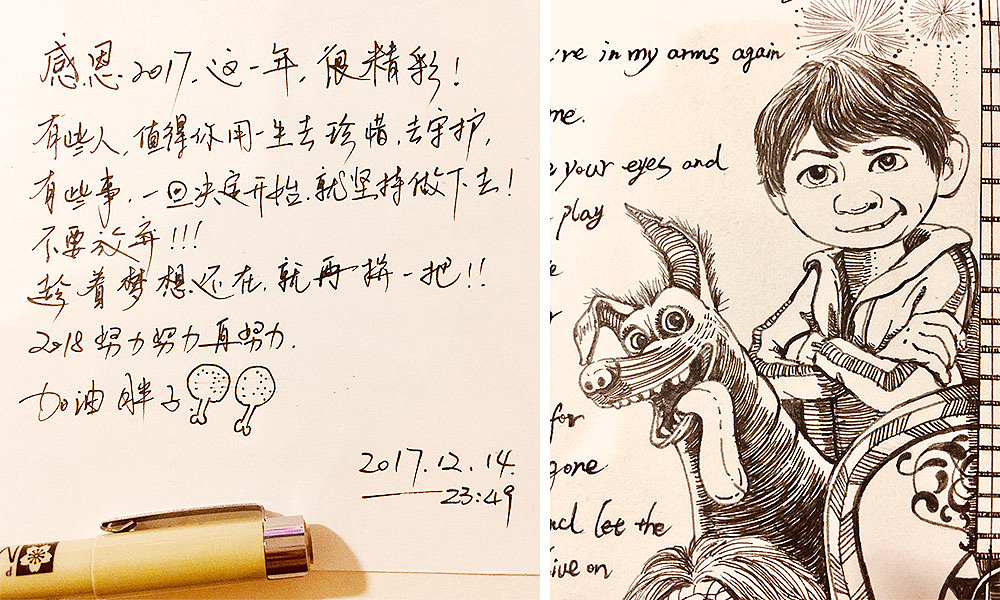 感恩.2017.这一年,很精彩!
有些人,值得你用一生去珍惜,去守护,
有些事,一旦决定开始,就坚持做下去!
不要放弃!!!
趁着梦想还在,就再拼一把!!
2018努力努力再努力.
加油胖子
2017.12.14.
23:49
're in my arms again
me.
your eyes and
play
for
gone
and let the
live on